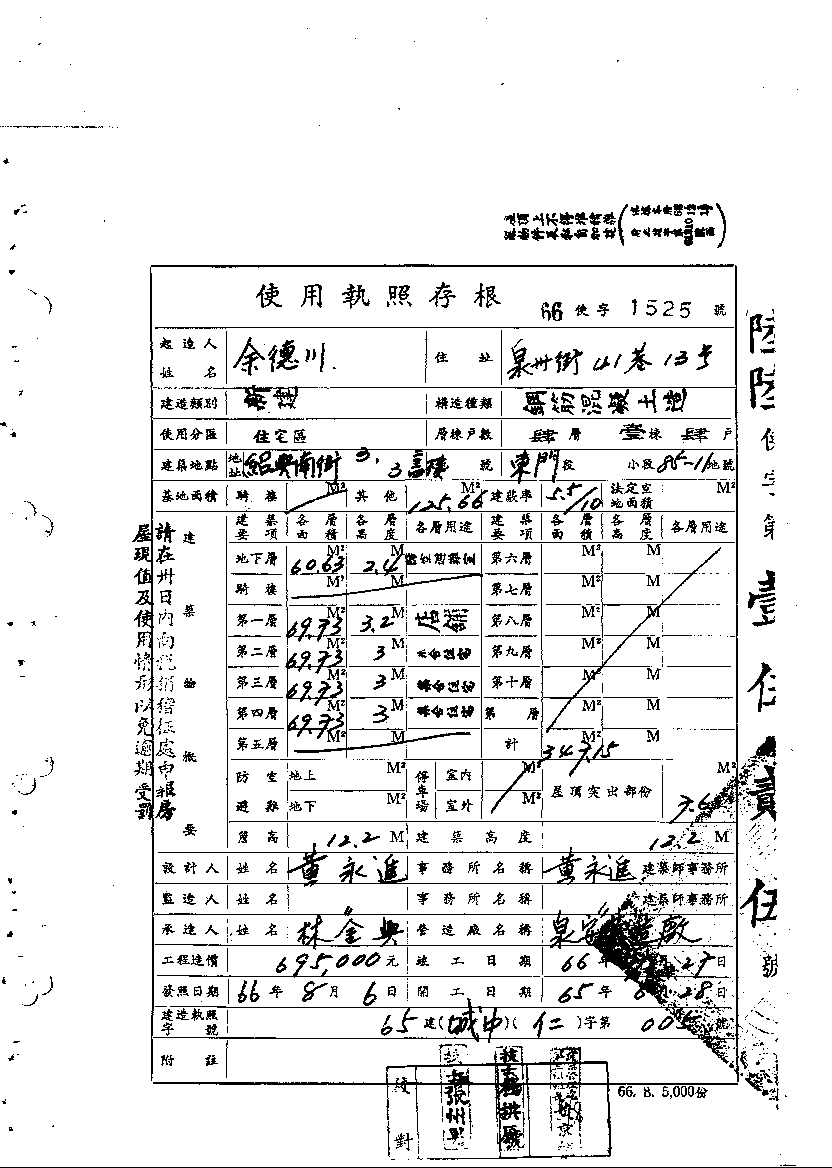 使用執照存根 66 使字 1525 號
起造人姓名 余德川 住址 泉州街41巷13号
建造類別 新建 構造種類 鋼筋混凝土造
使用分區 住宅區 層棟戶數 肆層 壹棟 肆戶
建築地點 地址 紹興南街 號 東門段 小段 85-11地號
基地面積 騎樓 M² 其他 125.66 M² 建蔽率 5.5/10 法定空地面積 M²
建築物概要
建築要項 各層面積 各層高度 各層用途 建築要項 各層面積 各層高度 各層用途
地下層 60.63 M² 2.4 M 第六層 M² M
騎樓 M² M 第七層 M² M
第一層 69.73 M² 3.2 M 店舖 第八層 M² M
第二層 69.73 M² 3 M 集合住宅 第九層 M² M
第三層 69.73 M² 3 M 集合住宅 第十層 M² M
第四層 69.73 M² 3 M 集合住宅 第 層 M² M
第五層 M² M 計 M² M
防空避難 地上 M² 停車場 室內 M² 屋頂突出部份 M²
地下 M² 室外 M²
簷高 12.2 M 建築高度 12.2 M
設計人 姓名 黃永進 事務所名稱 黃永進 建築師事務所
監造人 姓名 〃 事務所名稱 建築師事務所
承造人 姓名 林金興 營造廠名稱
工程造價 695,000元 竣工日期 66年
發照日期 66年8月6日 開工日期 65年
建造執照字號 65建(城中)(仁)字第
附註
校對
66. 8. 5,000份
請在卅日內向稅捐稽征處申報房
屋現值及使用情形以免逾期受罰
陸陸使字第壹伍貳伍號